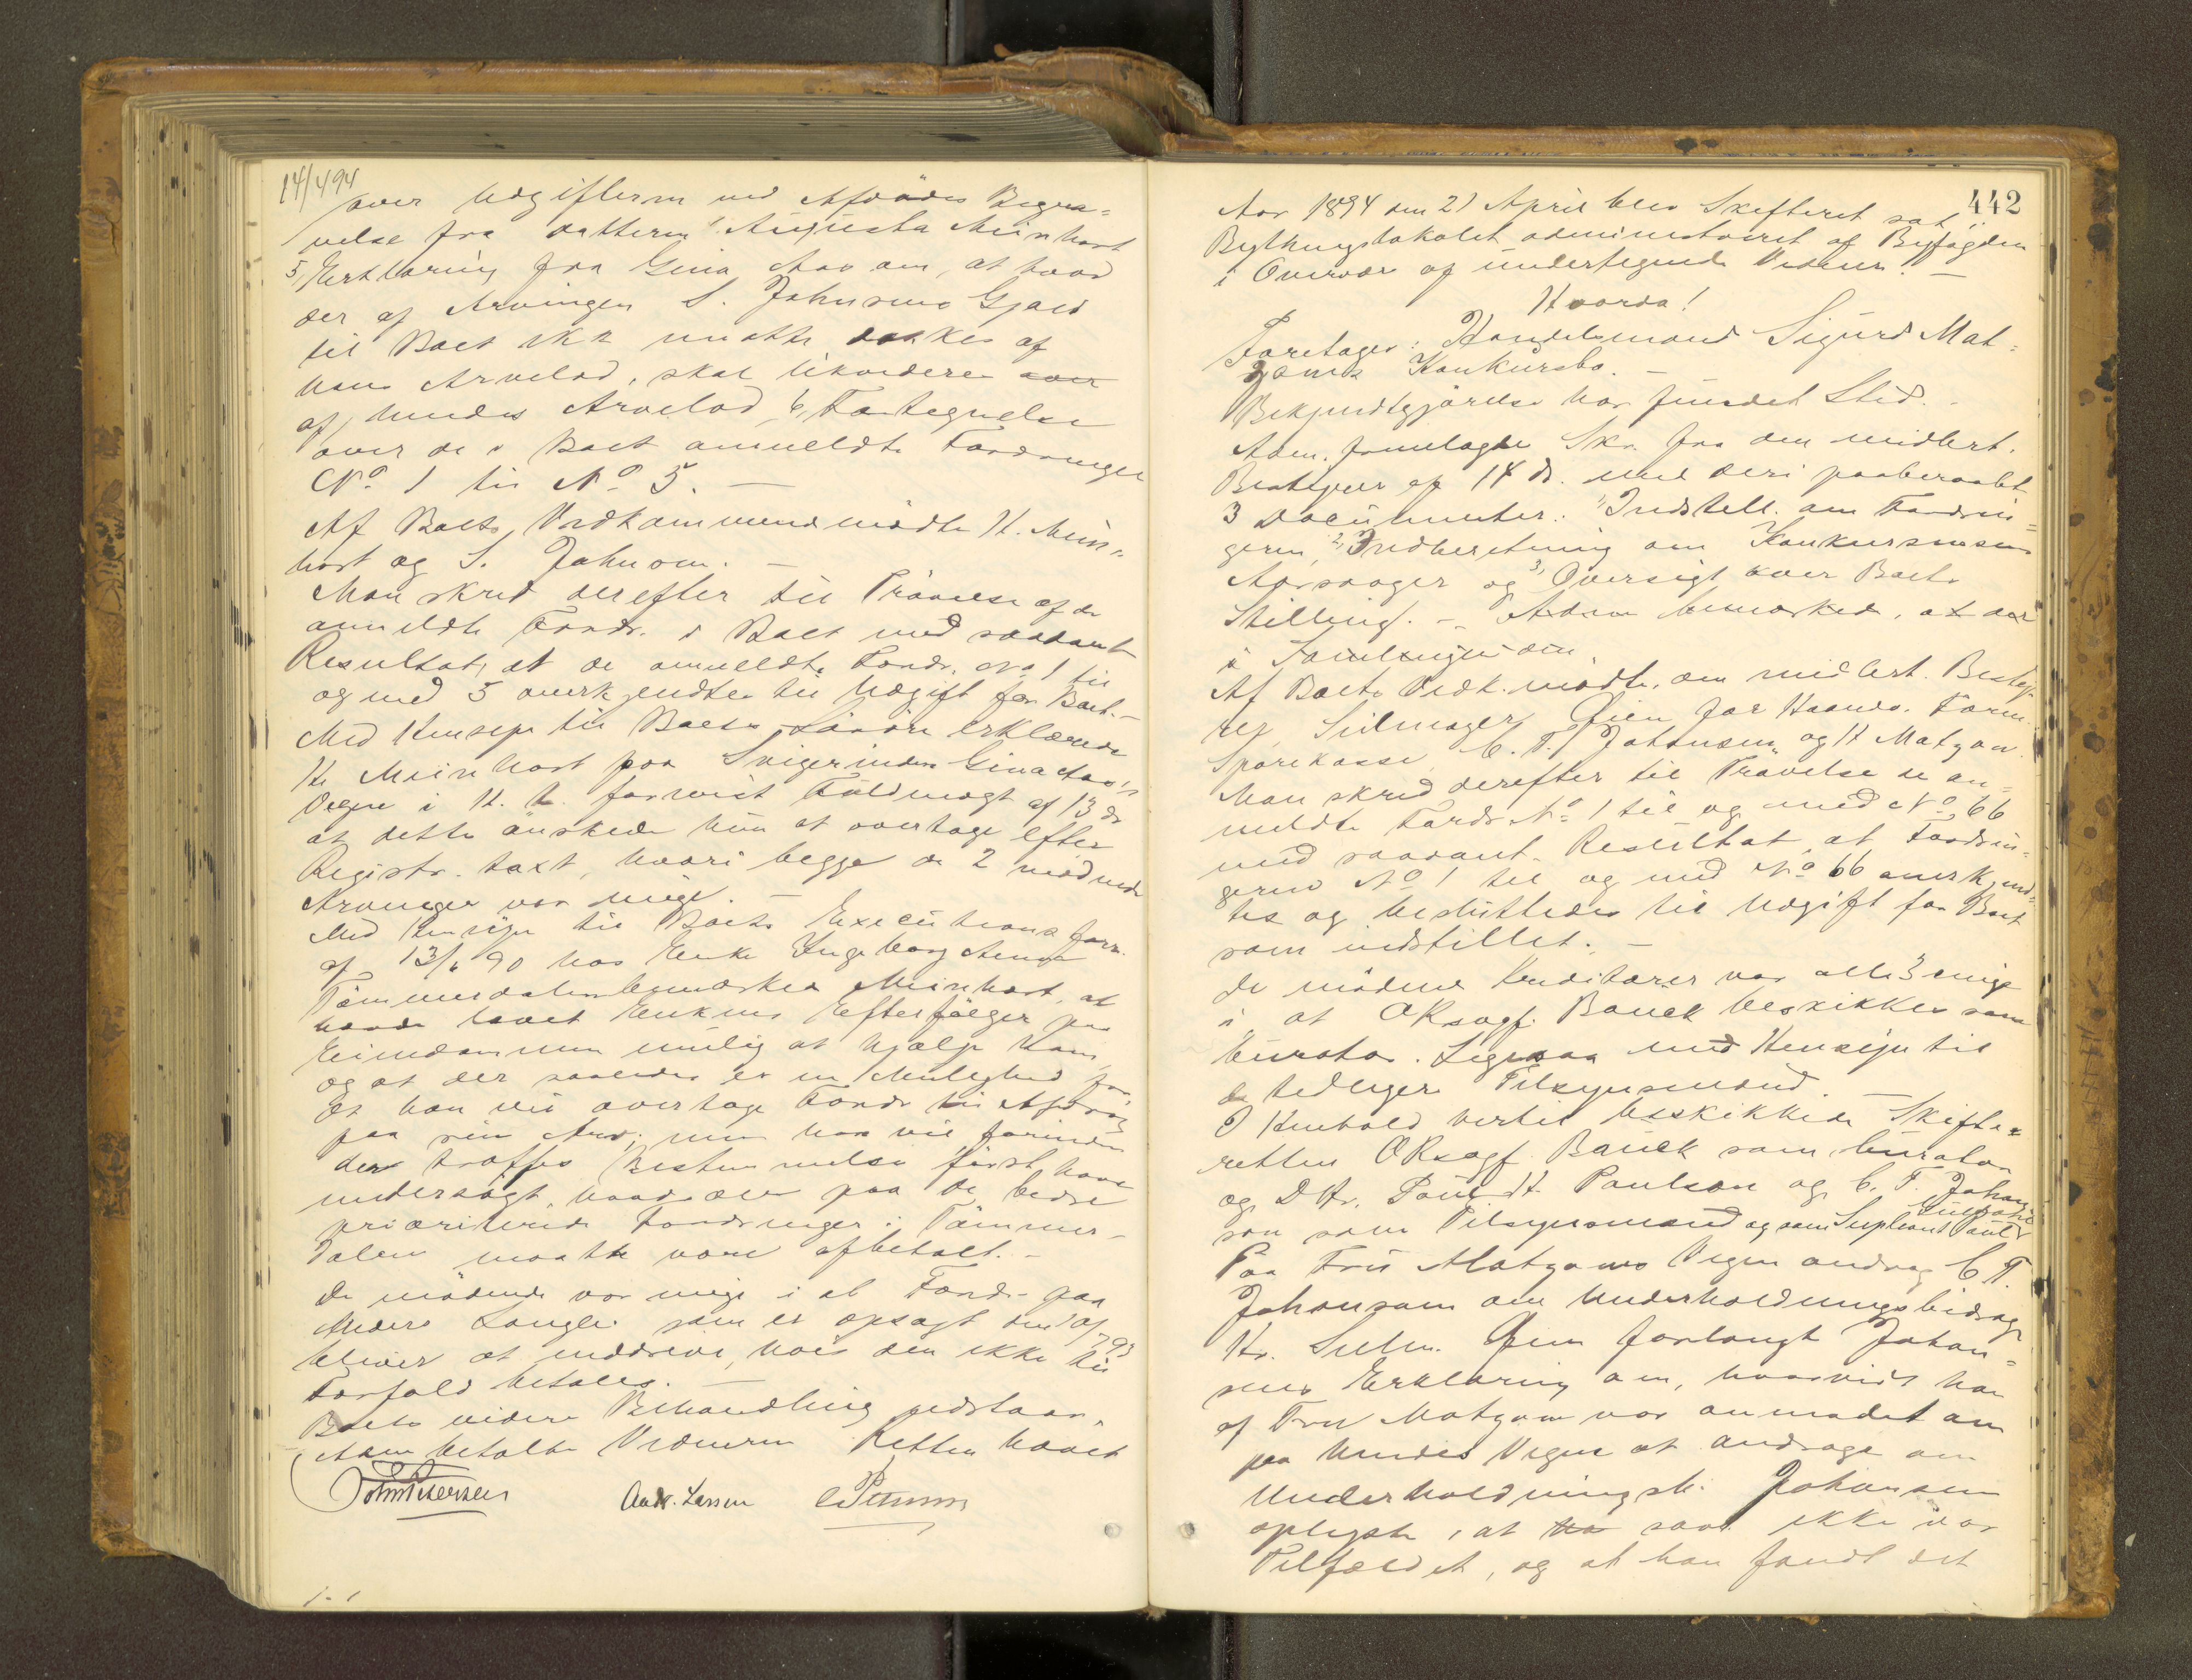 14/4 94
over Udgifterne ved Afdødes Begra=
velse fra datteren Augusta Meinhart
5, Erklæring fra Gina Aas om, at hvad
der af Arvingen S. Johnsens Gjæld
til Boet ikke maatte dækkes af
hans Arvelod, skal likvideres
af hendes Arvelod, 6, Fortegnelse
over de i Boet anmeldte Fordringer
No 1 til No 5. —
Af Boets Vedkommende mødte H. Mein=
hart og S. Johnsen. —
Man skred derefter til Prøvelse af de
anmeldte Fordr. i Boet med saadant
Resultat, at de anmeldte Fordr. No 1 til
og med 5 anerkjendtes til Udgift for Boet. —
Med Hensyn til Boets Løsøre erklærede
H. Meinhart paa Svigerinden Gina Aas's
Vegne i H. t. forevist Fuldmagt af 13 ds
at dette ønskede hun at overtage efter
Registr. taxt, hvori begge de 2 mødende
Arvinger var enige. —
Med Hensyn til Boets Executions forr.
af 13/6 90 hos Enke Ingeborg Anna
Tømmerdalen bemærkes Meinhart, at
havde lovet Enkens Efterfølger paa
Eiendommen mulig at hjælpe ham,
og at der saaledes er en Mulighed for
at han vil overtage Fordr. til Afdrag
paa sin Arv; men han vil forinden
der træffes Bestemmelse først have
undersøgt, hvad der paa de bedre
prioriterede Fordringer i Tømmer-
dalen maatte være afbetalt. —
De mødende var enige i at Fordr. paa
Anders Langli som er opsagt den
bliver at inddrive, hvis den ikke til
Forfald betales. —
Boets videre Behandling udstaar.
Adm betalte Vidnerne Retten hævet
John Petersen Andr. Larsen C Petersen
442
Aar 1894 den 21 April blev Skifteret sat i
Bythingslokalet administreret af Byfogden
i Overvær af undertegnede Vidner. —
Hvorda!
Foretages: Handelsmand Sigurd Mat=
zows Konkursbo. —
Bekjendtgjørelse har fundet Sted. —
Adm. fremlagde Skr. fra den midlert.
Bestyrer af 14 ds. med deri paaberaabt
3 Documenter: 1, Indstill. om Fordrin=
gerne, 2, Indberetning om Konkursens
Aarsager og 3, Oversigt over Boets
Stilling. — Adm bemærkede, at der
i
Af Boets Vedk. mødte, den midlert. Besty-
rer, Sulmager for Haandv. Foren.
Sparekasse, C. T. Johansen og H Matzow
Man skred derefter til Prøvelse de an=
meldte Fordr No 1 til og med No 66
med saadant Resultat, at Fordrin=
gerne No 1 til og med No 66 anerkjend=
tes og besluttedes til Udgift for Boet
som indstillet. —
De mødene Kreditorer var alle 3 enige
i at ORsagf. Bauck beskikkes som
Curator. Ligesaa med Hensyn til
de tidligere Tilsynsmænd. —
I Henhold hertil beskikkede Skifte=
retten ORsagf. Bauck som Curator
og D Hr. Poul H. Paulson og C. T. Johan
son som Tilsynsmænd og som Supleant
Paa Fru Matzows Vegne androg C T.
Johansen om Underholdningsbidrag
Hr. Sulm. forlangt Johan=
sens Erklæring om, hvorvidt han
af Fru Matzow var anmodet om
paa hendes Vegne at andrage om
Underholdningsb. Johansen
oplyste, at saa ikke var
Tilfældet, og at han fandt det